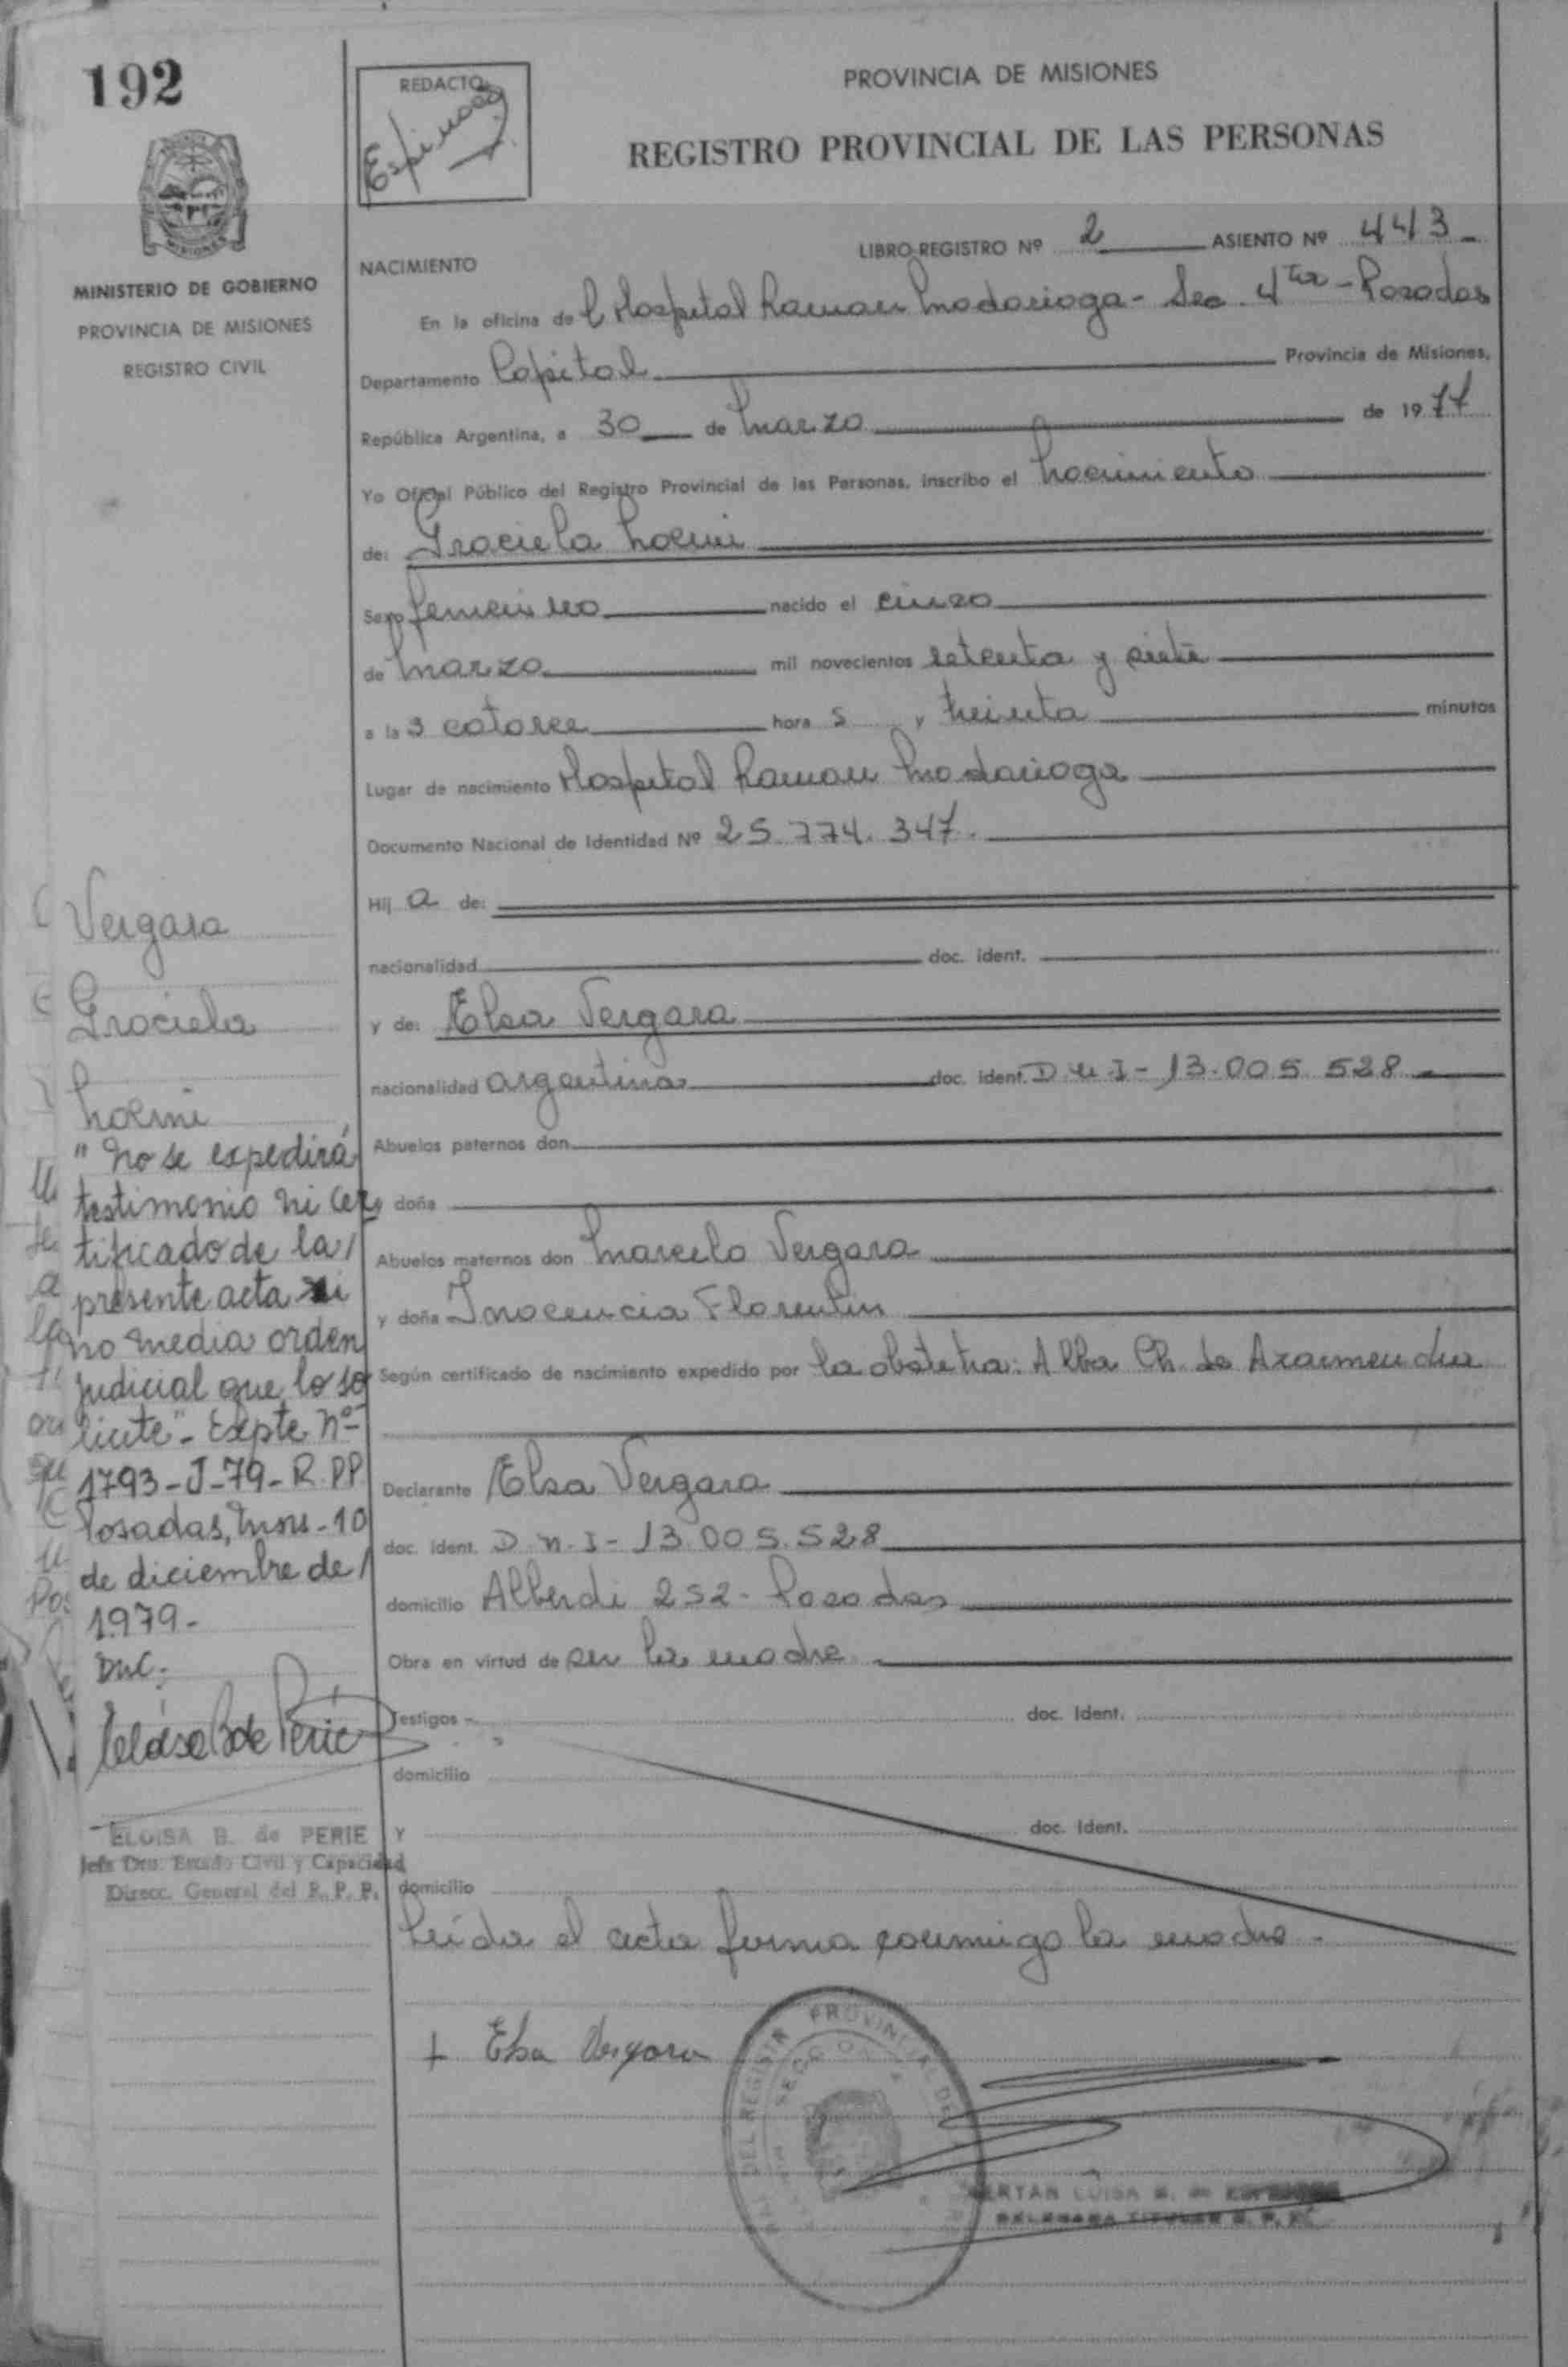 192
REDACTO
Espinoza
PROVINCIA DE MISIONES
REGISTRO PROVINCIAL DE LAS PERSONAS
MISIONES
MINISTERIO DE GOBIERNO
PROVINCIA DE MISIONES
REGISTRO CIVIL
LIBRO REGISTRO Nº 2 ASIENTO Nº 443
NACIMIENTO
En la oficina del Hospital Ramon Madariaga - Sec. 4ta - Posadas
Departamento Capital Provincia de Misiones,
República Argentina, a 30 de Marzo de 1977
Yo Oficial Público del Registro Provincial de las Personas, inscribo el Nacimiento
de: Graciela Noemi
Sexo femenino nacido el cinco
de Marzo mil novecientos setenta y siete
a las catorce horas y treinta minutos
Lugar de nacimiento Hospital Ramon Madariaga
Documento Nacional de Identidad Nº 25.774.347.
Hija de:
nacionalidad doc. ident.
y de: Elsa Vergara
nacionalidad argentina doc. ident. D.N.I - 13.005.528
Abuelos paternos don
doña
Abuelos maternos don Marcelo Vergara
y doña Inocencia Florentin
Según certificado de nacimiento expedido por la obstetra: Alba Ch. de
Declarante Elsa Vergara
doc. ident. D.N.I - 13.005.528
domicilio Alberdi 252 - Posadas
Obra en virtud de ser la madre
Testigos doc. Ident.
domicilio
Y doc. Ident.
domicilio
Leída el acta firma conmigo la madre.
+ Elsa Vergara
Vergara
Graciela
Noemi
"No se expedirá
testimonio ni cer
tificado de la/
presente acta si
no media orden
judicial que lo so
licite". Expte Nº
1793-J-79-R.PP
Posadas, Mnes-10
de diciembre de/
1979-
DNC.
Eloisa B de Perie
ELOISA B. de PERIE
Jefa Dto. Estado Civil y Capacidad
Direcc. General del R. P. P.